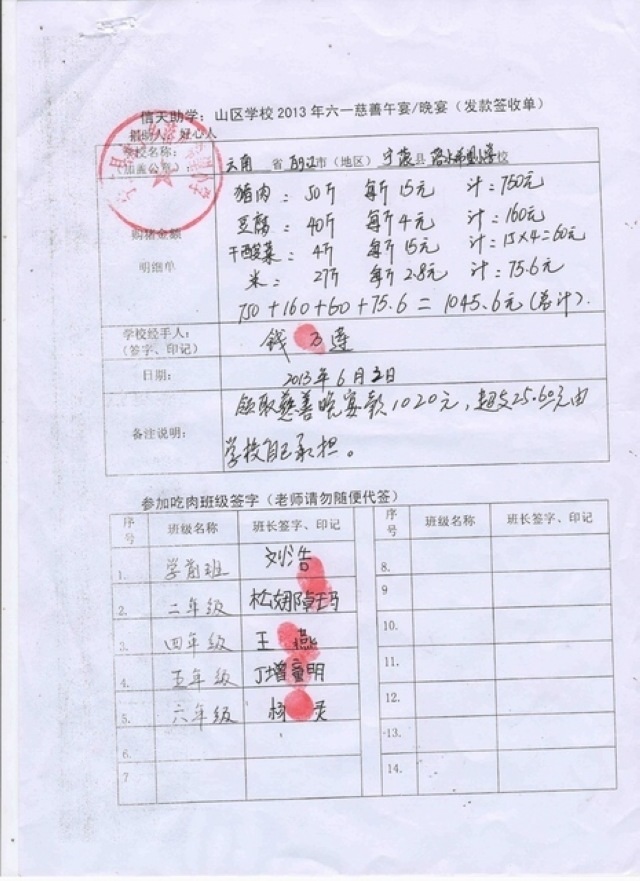 信天助学：山区学校 2013 年六一慈善午宴/晚宴（发款签收单）
捐助人：好心人
学校名称：
（加盖公章）：
云南 省 丽江 市（地区） 宁蒗 县 小学 校
购猪金额
明细单
猪肉： 50斤 每斤 15元 计：750元
豆腐： 40斤 每斤 4元 计：160元
干酸菜： 4斤 每斤 15元 计：15×4=60元
米： 27斤 每斤 2.8元 计：75.6元
750+160+60+75.6=1045.6元(总计).
学校经手人：
（签字、印记）
钱万莲
日期： 2013年6月2日
备注说明：
领取慈善晚宴款1020元，超支25.60元由
学校自己承担。
参加吃肉班级签字（老师请勿随便代签）
序号 班级名称 班长签字、印记 序号 班级名称 班长签字、印记
1. 学前班 刘浩 8.
2. 二年级 松娜 玛 9
3. 四年级 王燕 10.
4. 五年级 丁增童明 11.
5. 六年级 杨灵 12.
6. 13.
7 14.